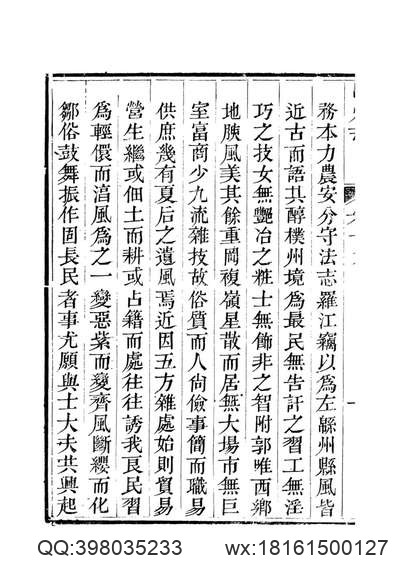 務本力農安分守法志羅江竊以為左緜州縣風皆
近古而語其醇樸州境為最民無告訐之習工無淫
巧之技女無艷冶之粧士無飾非之智附郭唯西鄉
地腴風美其餘重岡複嶺星散而居無大場市無巨
室富商少九流雜技故俗質而人尙儉事簡而職易
供庶幾有夏后之遺風焉近因五方雜處始則貿易
營生繼或佃土而耕或占籍而處往往誘我良民習
為輕儇而湻風為之一變惡紫而變齊風斷纓而化
鄒俗鼓舞振作固長民者事尤願與士大夫共興起
QQ:398035233 wx:18161500127